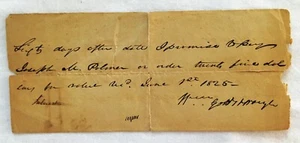 Sixty days after date I promise to pay
Joseph M. Palmer or order twenty five dol
lars for value rec. June 1st 1825